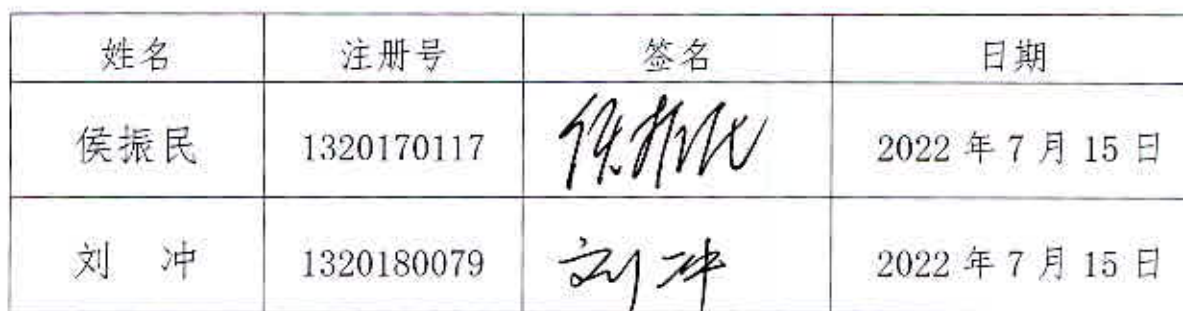 姓名 注册号 签名 日期
侯振民 1320170117 侯振民 2022年7月15日
刘 冲 1320180079 刘冲 2022年7月15日